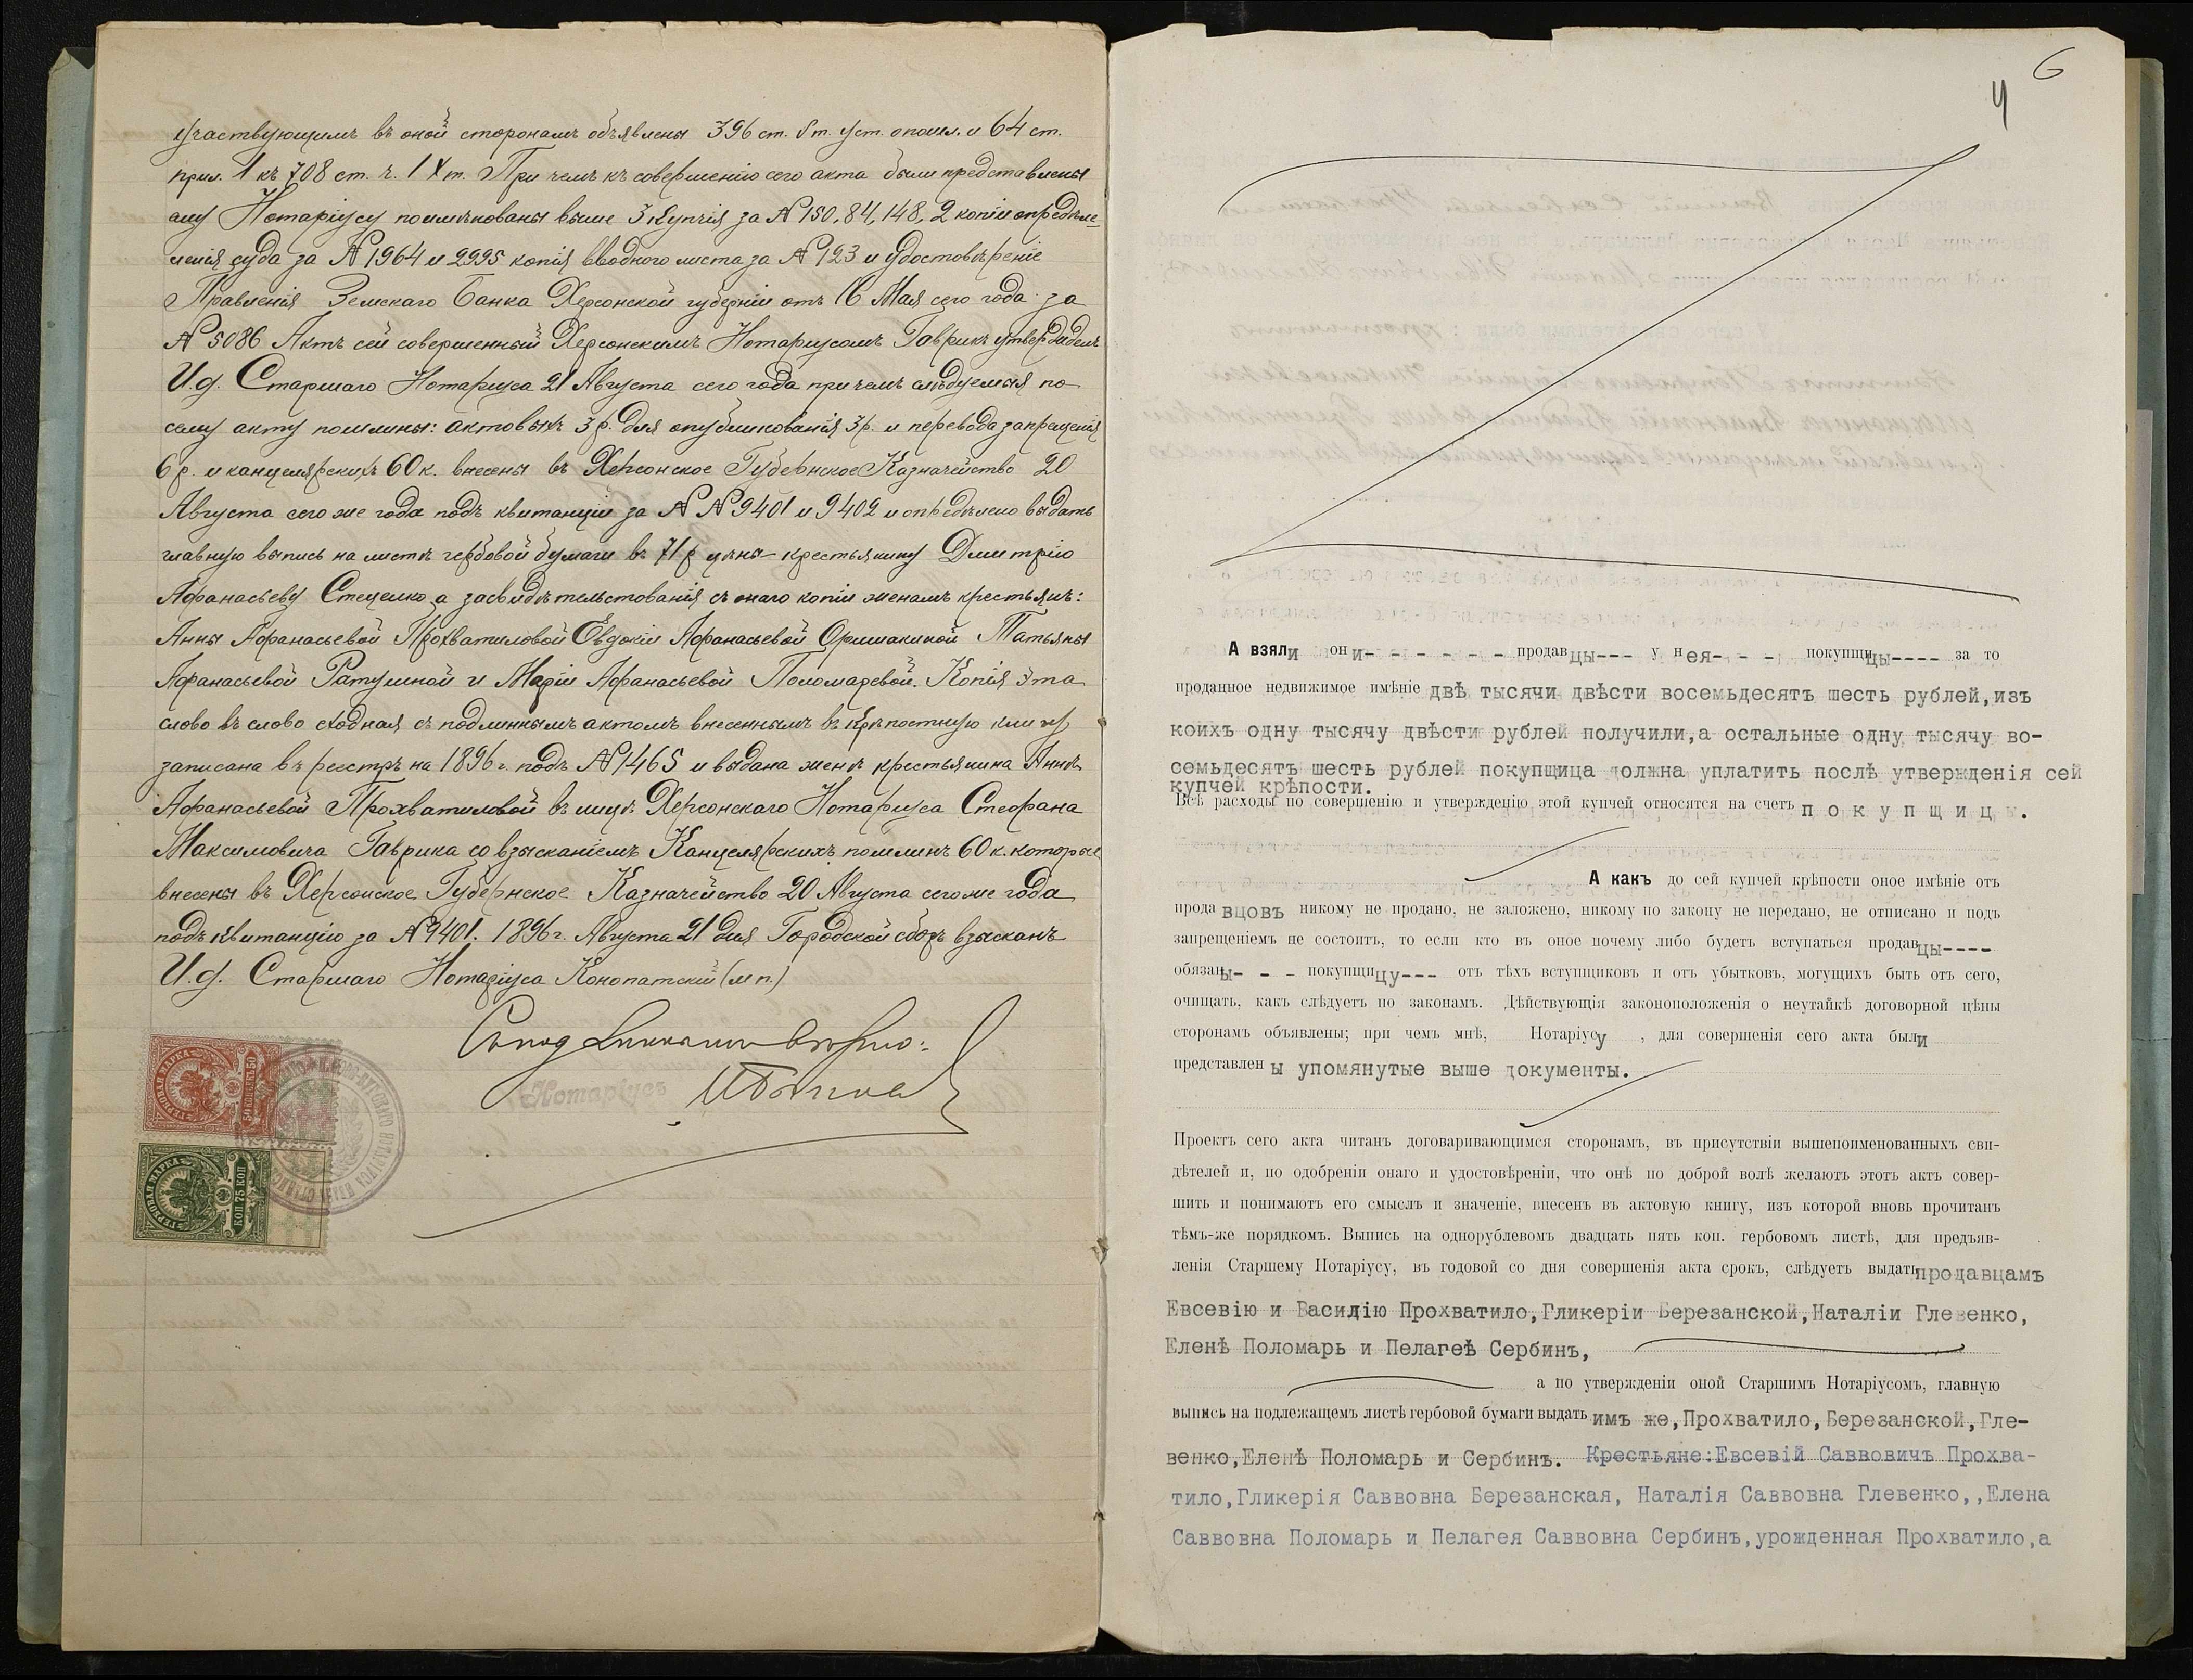 участвующимъ въ оной сторонамъ объявлены 396 ст. 5 т. уст. о пошл. и 64 ст.
прил. 1 къ 708 ст. ч. 1 X т. При чемъ къ совершенію сего акта были представлены
ему Нотаріусу поимѣнованы выше 3 купчія за № 150, 84, 148, 2 копіи опредѣле-
ленія суда за № 1964 и 2995 копія вводного листа за № 123 и удостовѣреніе
Правленія Земскаго Банка Херсонской губерніи отъ 16 Мая сего года за
№ 5086 Актъ сей совершенный Херсонскимъ Нотаріусомъ Гаврикъ утвержденъ
И.д. Старшаго Нотаріуса 21 Августа сего года при чемъ слѣдуемыя по
сему акту пошлины: актовыхъ 3 р. для опубликованія 3 р. и перевода запрещенія
6 р. и канцелярскихъ 60 к. внесены въ Херсонское Губернское Казначейство 20
Августа сего же года подъ квитанціи за № № 9401 и 9402 и опредѣлено выдать
главную выпись на листѣ гербовой бумаги въ 71 р цѣны крестьянину Дмитрію
Афанасьеву Стеценко, а засвидѣтельстованія съ онаго копіи женамъ крестьянъ:
Анны Афанасьевой Прохватиловой Евдокіи Афанасьевой Татьяны
Афанасьевой Ратушной и Маріи Афанасьевой Поломаревой. Копія эта
слово въ слово сходная съ подлиннымъ актомъ внесеннымъ въ крѣпостную книгу
записана въ реестръ на 1896 г. подъ № 1465 и выдана женѣ крестьянина Аннѣ
Афанасьевой Прохватиловой въ лицѣ Херсонскаго Нотаріуса Стефана
Максимовича Гаврика со взысканіемъ Канцелярскихъ пошлинъ 60 к. которые
внесены въ Херсонское Губернское Казначейство 20 Августа сего же года
подъ квитанцію за № 9401. 1896 г. Августа 21 дня Городской сборъ взысканъ
И.д. Старшаго Нотаріуса Конопатскій (м п.)
Съ подлиннымъ вѣрно:
Нотаріусъ
ГЕРБОВАЯ МАРКА
50 КОПѢЕКЪ 50
ГЕРБОВАЯ МАРКА
КОП 75 КОП
6
4
А взяли они- - - - - - - продавцы--- у нея- - - покупщицы---- за то
проданное недвижимое имѣніе двѣ тысячи двѣсти восемьдесятъ шесть рублей,изъ
коихъ одну тысячу двѣсти рублей получили,а остальные одну тысячу во-
семьдесятъ шесть рублей покупщица должна уплатить послѣ утвержденія сей
купчей крѣпости.
Всѣ расходы по совершенію и утвержденію этой купчей относятся на счетъ покупщицы.
А какъ до сей купчей крѣпости оное имѣніе отъ
продавцовъ никому не продано, не заложено, никому по закону не передано, не отписано и подъ
запрещеніемъ не состоитъ, то если кто въ оное почему либо будетъ вступаться продавцы----
обязаны- - - покупщицу--- отъ тѣхъ вступщиковъ и отъ убытковъ, могущихъ быть отъ сего,
очищать, какъ слѣдуетъ по законамъ. Дѣйствующія законоположенія о неутайкѣ договорной цѣны
сторонамъ объявлены; при чемъ мнѣ, Нотаріусу , для совершенія сего акта были
представлены упомянутые выше документы.
Проектъ сего акта читанъ договаривающимся сторонамъ, въ присутствіи вышепоименованныхъ сви-
дѣтелей и, по одобреніи онаго и удостовѣреніи, что онѣ по доброй волѣ желаютъ этотъ актъ совер-
шить и понимаютъ его смыслъ и значеніе, внесенъ въ актовую книгу, изъ которой вновь прочитанъ
тѣмъ-же порядкомъ. Выпись на однорублевомъ двадцать пять коп. гербовомъ листѣ, для предъяв-
ленія Старшему Нотаріусу, въ годовой со дня совершенія акта срокъ, слѣдуетъ выдать продавцамъ
Евсевію и Василію Прохватило,Гликеріи Березанской,Наталіи Глевенко,
Еленѣ Поломарь и Пелагеѣ Сербинъ,
а по утвержденіи оной Старшимъ Нотаріусомъ, главную
выпись на подлежащемъ листѣ гербовой бумаги выдать имъ же,Прохватило,Березанской,Гле-
венко,Еленѣ Поломарь и Сербинъ. Крестьяне:Евсевій Саввовичъ Прохва-
тило,Гликерія Саввовна Березанская, Наталія Саввовна Глевенко,,Елена
Саввовна Поломарь и Пелагея Саввовна Сербинъ,урожденная Прохватило,а